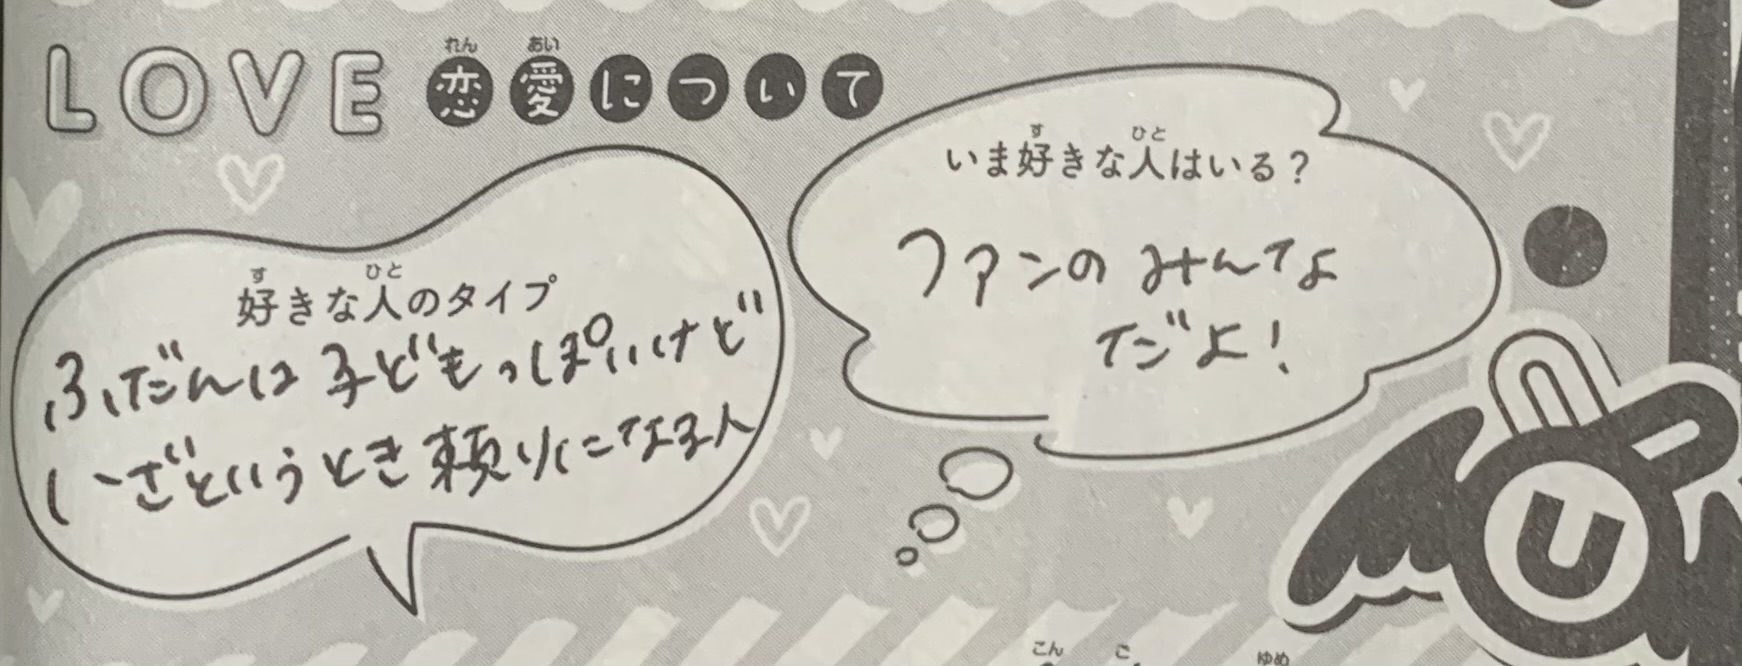 LOVE 恋愛について
れん あい
好きな人のタイプ
す ひと
ふだんは子どもっぽいけど
いざというとき頼りになる人
いま好きな人はいる？
す ひと
ファンのみんな
だよ！
U
こん ご ゆめ